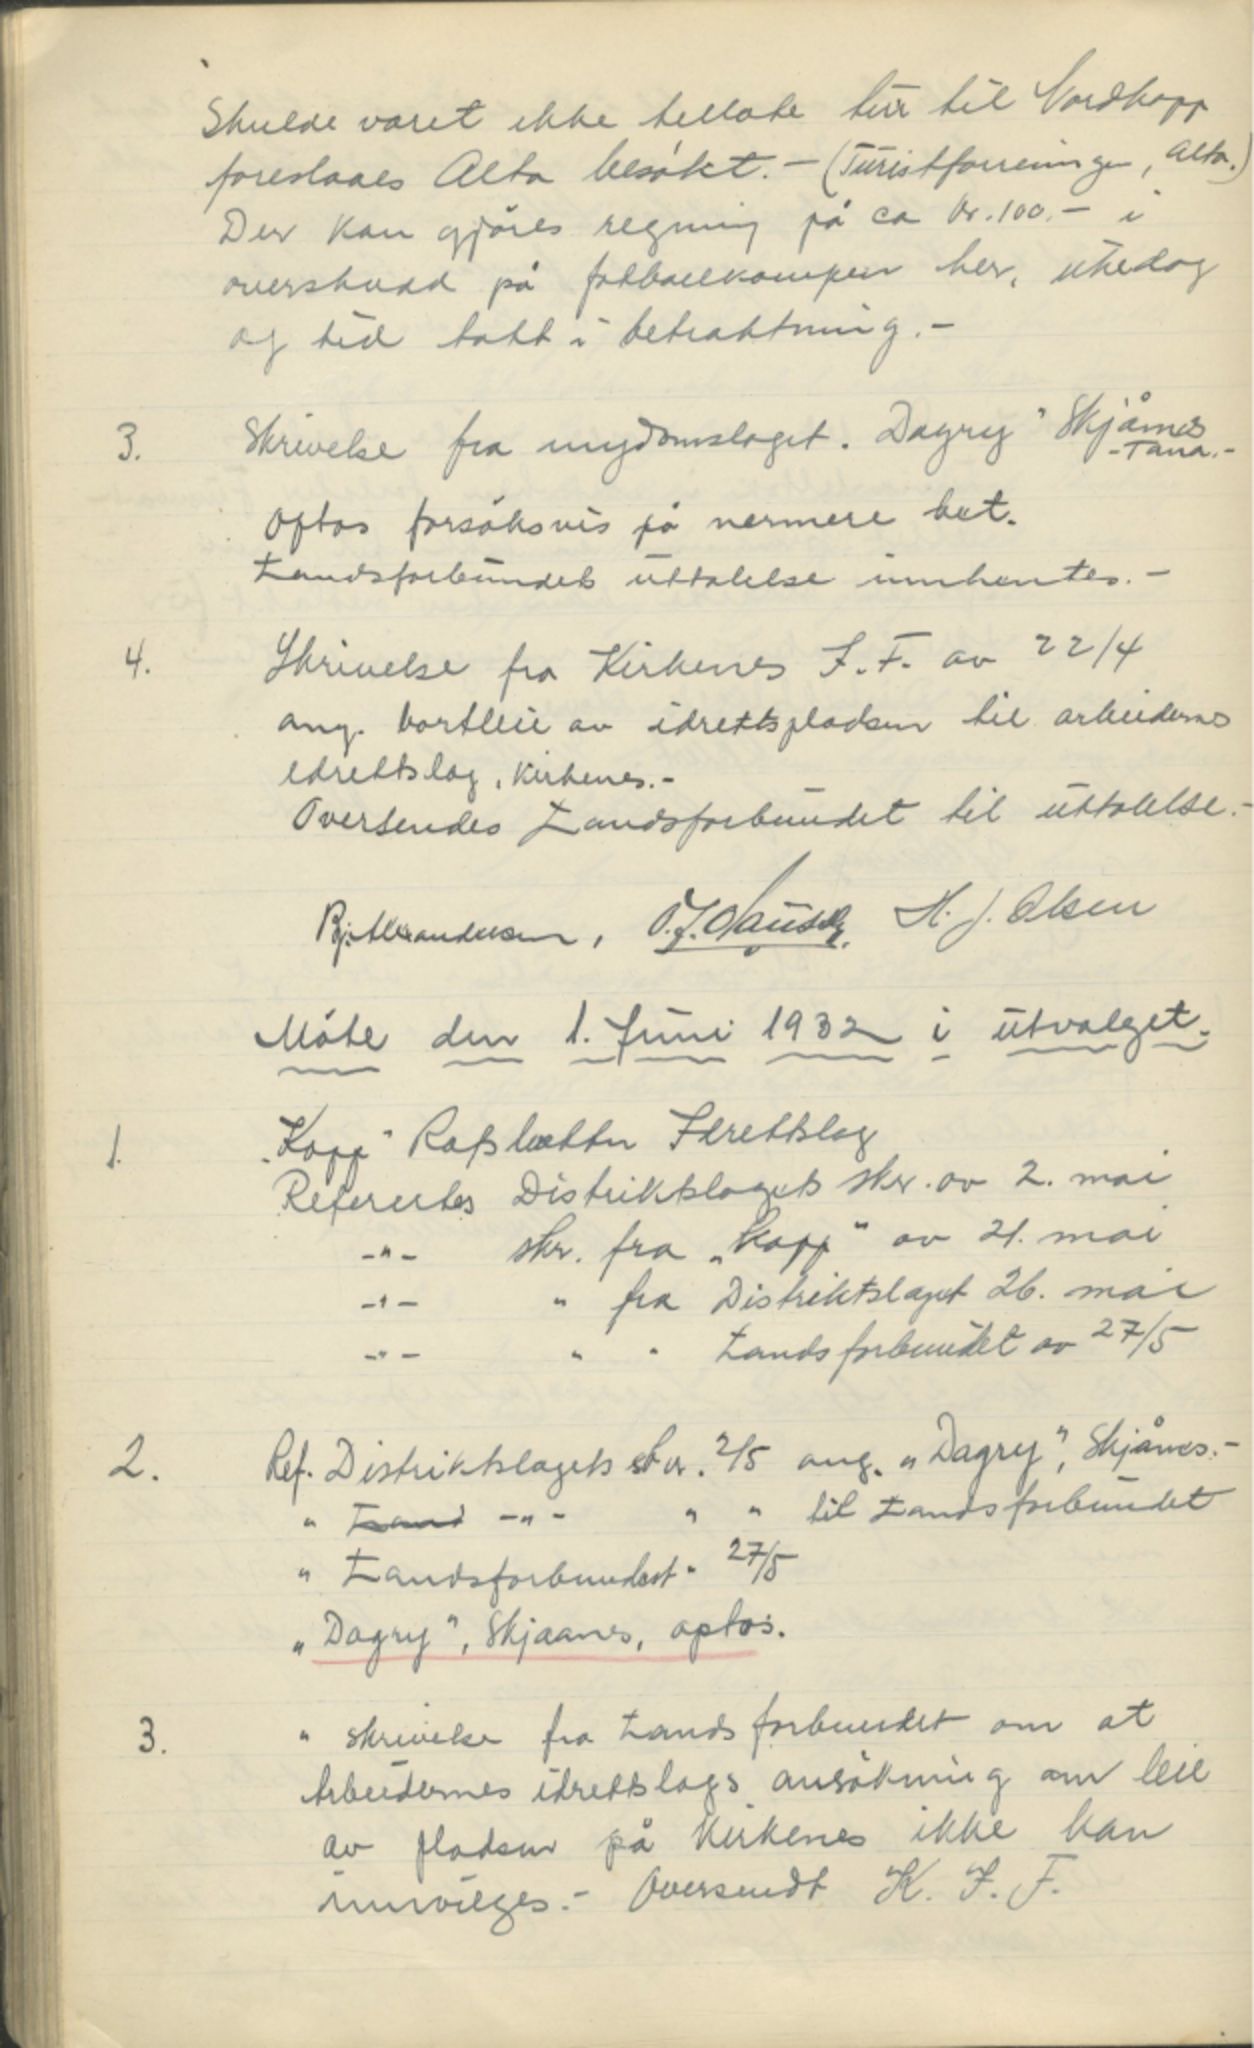 Skulde været ikke tillate tur til Nordkapp
foreslaaes Alta besøkt. - (Turistforeningen, Alta.)
Der kan gjøres regning på ca kr. 100.- i
overskudd på fotballkampen her, ukedag
og tid tatt i betraktning. -
3. Skrivelse fra ungdomslaget. Dagry" Skjånes
- Tana. -
Optas forsøksvis på nermere bet.
Landsforbundets uttalelse innhentes. -
4. Skrivelse fra Kirkenes I. F. av 22/4
ang. bortleie av idrettspladsen til arbeidernes
idrettslag, Kirkenes. -
Oversendes Landsforbundet til uttalelse. -
Bj. Alexandersen, H. J. Olsen
Møte den 1. Juni 1932 i utvalget.
1. „Kapp" Idrettslag
Referertes Distriktslagets skr. av 2. mai
-"- skr. fra „Kapp" av 21. mai
-"- " fra Distriktslaget 26. mai
-"- " " Landsforbundet av 27/5
2. Ref. Distriktslagets skr. 2/5 ang. „Dagry", Skjånes. -
" Land -"- " " til Landsforbundet
" Landsforbundet " 27/5
„Dagry", Skjaanes, optas.
3. " skrivelse fra Landsforbundet om at
Arbeidernes idrettslags ansøkning om leie
av pladsen på Kirkenes ikke kan
innvilges. - Oversendt K. I. F.